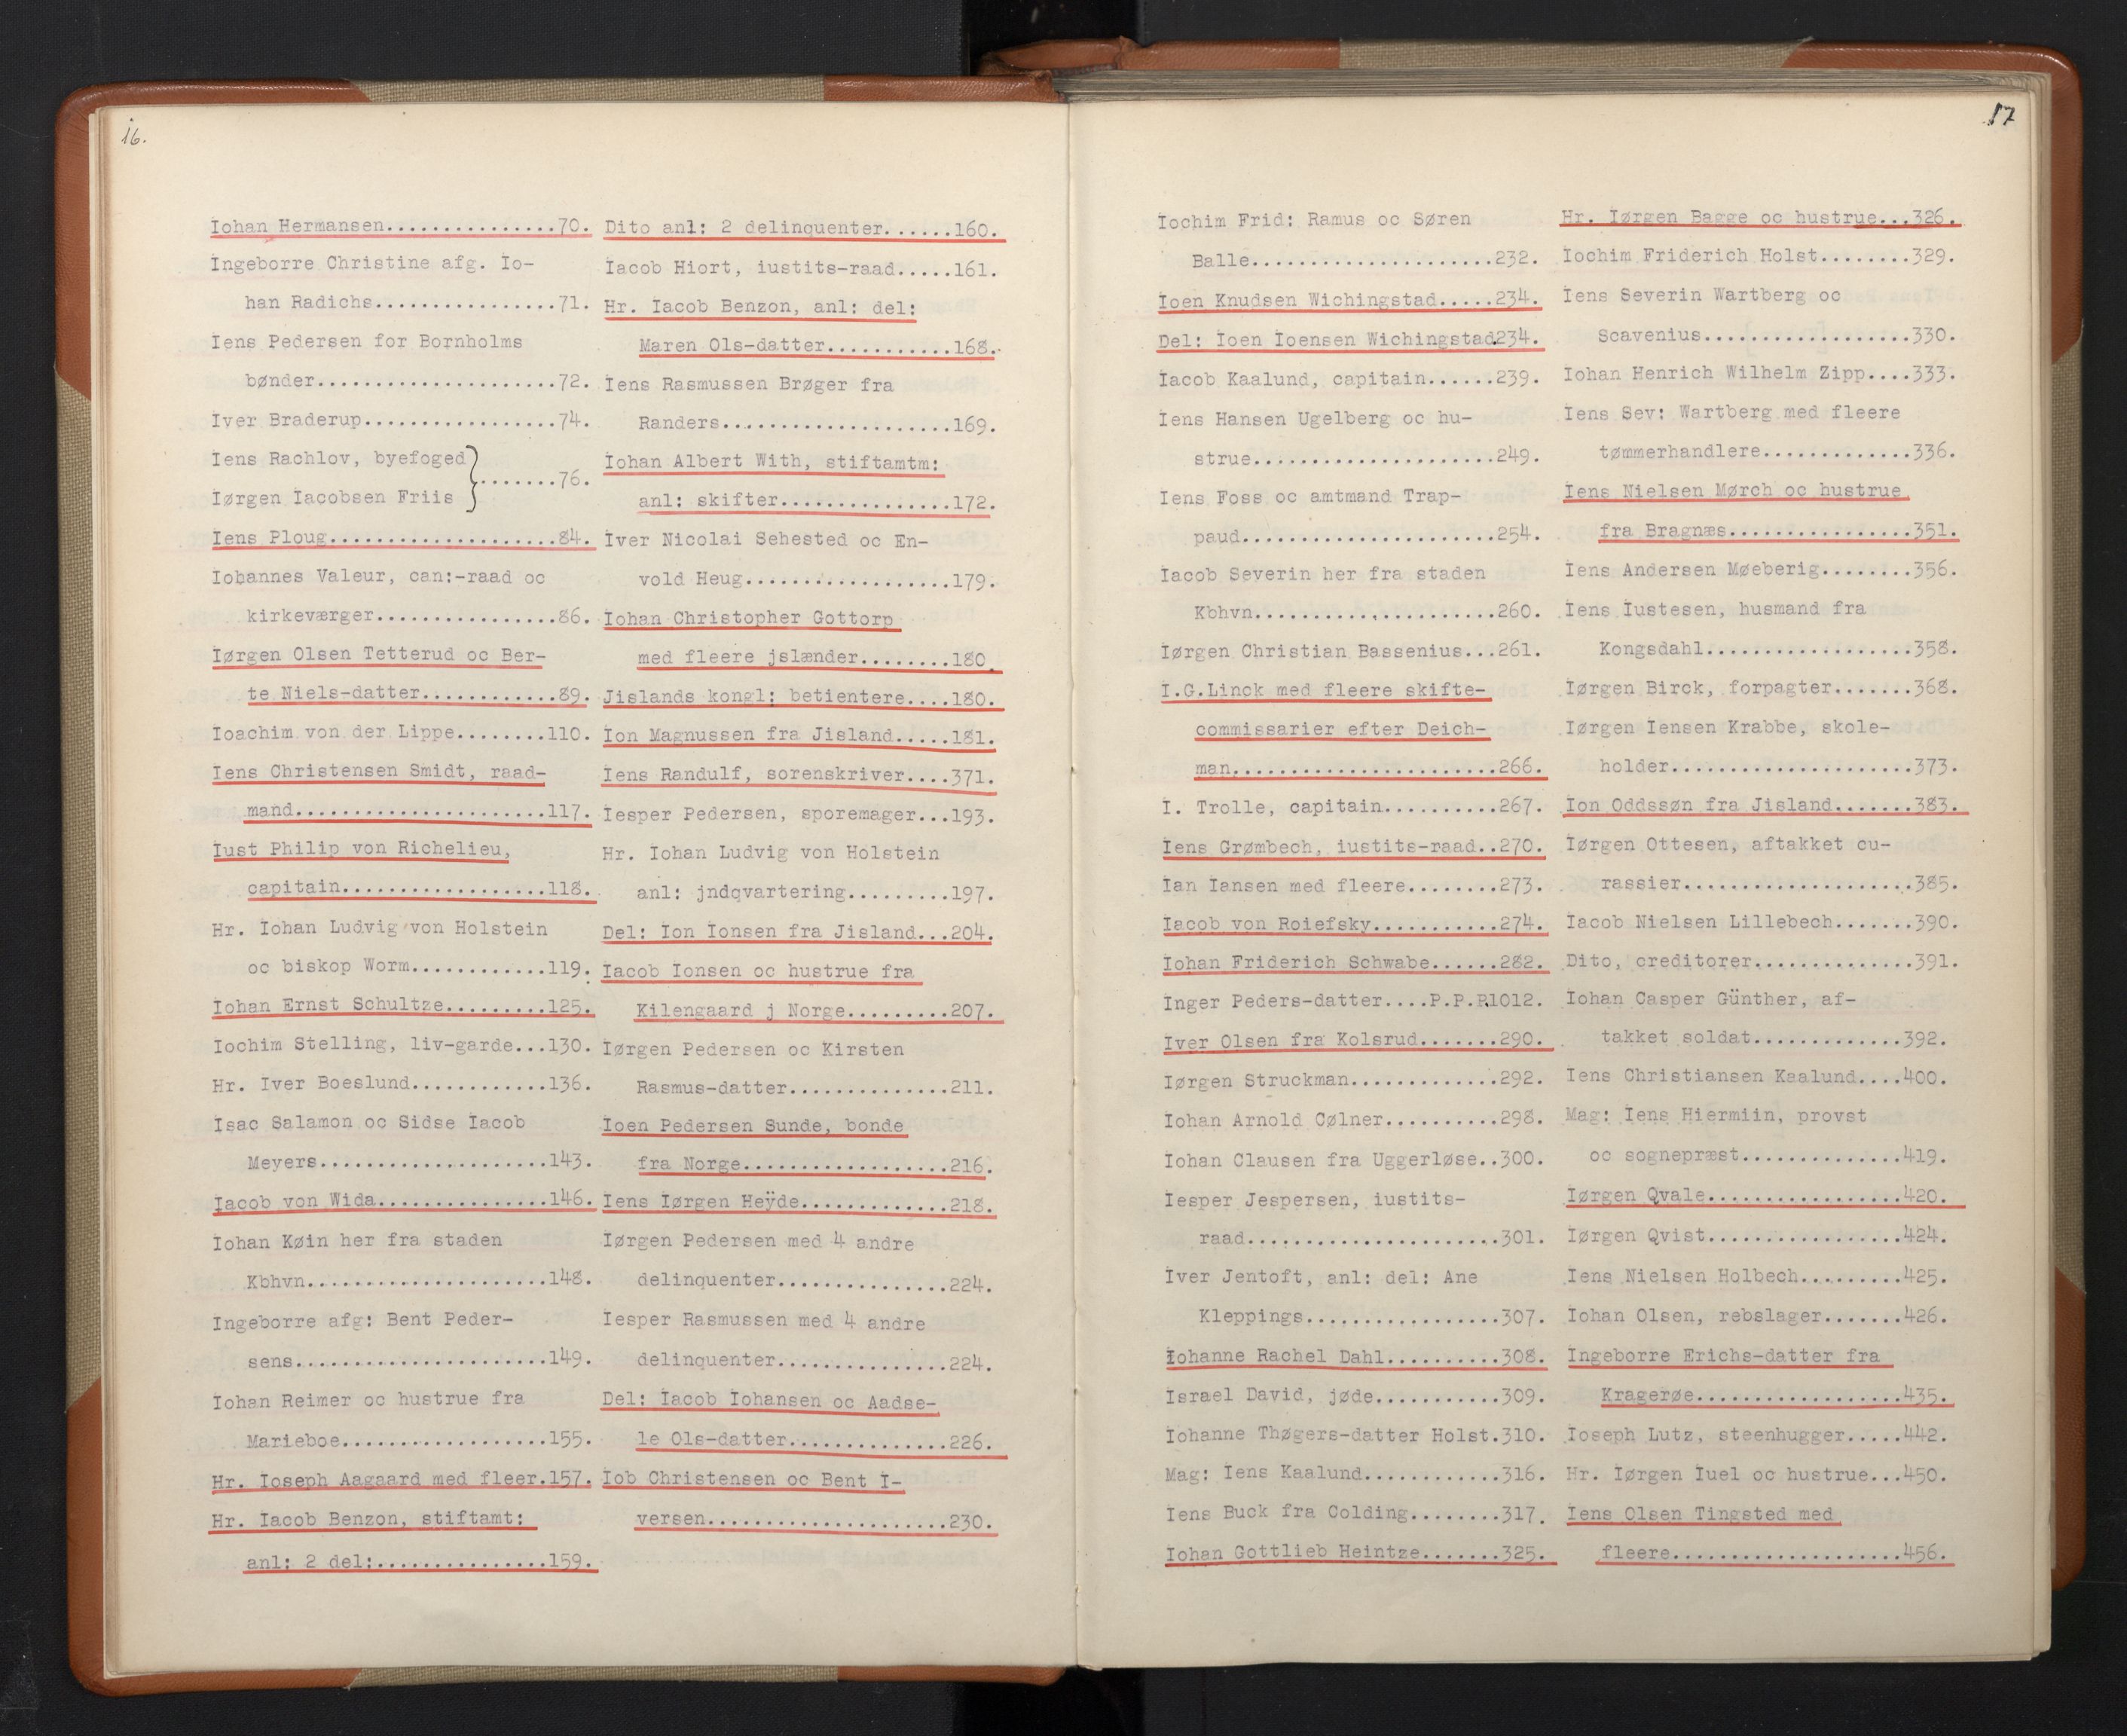 16.
Iohan Hermansen...............70.
Ingeborre Christine afg. Io-
han Radichs................71.
Iens Pedersen for Bornholms
bønder.....................72.
Iver Braderup.................74.
Iens Rachlov, byefoged
.......76.
Iørgen Iacobsen Friis
Iens Ploug....................84.
Iohannes Valeur, can:-raad oc
kirkeværger................86.
Iørgen Olsen Tetterud oc Ber-
te Niels-datter............89.
Ioachim von der Lippe........110.
Iens Christensen Smidt, raad-
mand......................117.
Iust Philip von Richelieu,
capitain..................118.
Hr. Iohan Ludvig von Holstein
oc biskop Worm............119.
Iohan Ernst Schultze.........125.
Iochim Stelling, liv-garde...130.
Hr. Iver Boeslund............136.
Isac Salamon oc Sidse Iacob
Meyers....................143.
Iacob von Wida...............146.
Iohan Køin her fra staden
Kbhvn.....................148.
Ingeborre afg: Bent Peder-
sens......................149.
Iohan Reimer oc hustrue fra
Marieboe..................155.
Hr. Ioseph Aagaard med fleer.157.
Hr. Iacob Benzon, stiftamt:
anl: 2 del:...............159.
Dito anl: 2 delinquenter......160.
Iacob Hiort, iustits-raad.....161.
Hr. Iacob Benzon, anl: del:
Maren Ols-datter...........168.
Iens Rasmussen Brøger fra
Randers....................169.
Iohan Albert With, stiftamtm:
anl: skifter...............172.
Iver Nicolai Sehested oc En-
vold Heug..................179.
Iohan Christopher Gottorp
med fleere jslænder........180.
Jislands kongl: betientere....180.
Ion Magnussen fra Jisland.....181.
Iens Randulf, sorenskriver....371.
Iesper Pedersen, sporemager...193.
Hr. Iohan Ludvig von Holstein
anl: jndqvartering.........197.
Del: Ion Ionsen fra Jisland...204.
Iacob Ionsen oc hustrue fra
Kilengaard j Norge.........207.
Iørgen Pedersen oc Kirsten
Rasmus-datter..............211.
Ioen Pedersen Sunde, bonde
fra Norge..................216.
Iens Iørgen Heÿde.............218.
Iørgen Pedersen med 4 andre
delinquenter...............224.
Iesper Rasmussen med 4 andre
delinquenter...............224.
Del: Iacob Iohansen oc Aadse-
le Ols-datter..............226.
Iob Christensen oc Bent I-
versen.....................230.
17
Iochim Frid: Ramus oc Søren
Balle.....................232.
Ioen Knudsen Wichingstad.....234.
Del: Ioen Ioensen Wichingstad234.
Iacob Kaalund, capitain......239.
Iens Hansen Ugelberg oc hu-
strue.....................249.
Iens Foss oc amtmand Trap-
paud......................254.
Iacob Severin her fra staden
Kbhvn.....................260.
Iørgen Christian Bassenius...261.
I.G.Linck med fleere skifte-
commissarier efter Deich-
man.......................266.
I. Trolle, capitain..........267.
Iens Grømbech, iustits-raad..270.
Ian Iansen med fleere........273.
Iacob von Roiefsky...........274.
Iohan Friderich Schwabe......282.
Inger Peders-datter....P.P.R1012.
Iver Olsen fra Kolsrud.......290.
Iørgen Struckman.............292.
Iohan Arnold Cølner..........298.
Iohan Clausen fra Uggerløse..300.
Iesper Jespersen, iustits-
raad......................301.
Iver Jentoft, anl: del: Ane
Kleppings.................307.
Iohanne Rachel Dahl..........308.
Israel David, jøde...........309.
Iohanne Thøgers-datter Holst.310.
Mag: Iens Kaalund............316.
Iens Buck fra Colding........317.
Iohan Gottlieb Heintze.......325.
Hr. Iørgen Bagge oc hustrue...326.
Iochim Friderich Holst........329.
Iens Severin Wartberg oc
Scavenius..................330.
Iohan Henrich Wilhelm Zipp....333.
Iens Sev: Wartberg med fleere
tømmerhandlere.............336.
Iens Nielsen Mørch oc hustrue
fra Bragnæs................351.
Iens Andersen Møeberig........356.
Iens Iustesen, husmand fra
Kongsdahl..................358.
Iørgen Birck, forpagter.......368.
Iørgen Iensen Krabbe, skole-
holder.....................373.
Ion Oddssøn fra Jisland.......383.
Iørgen Ottesen, aftakket cu-
rassier....................385.
Iacob Nielsen Lillebech.......390.
Dito, creditorer..............391.
Iohan Casper Günther, af-
takket soldat..............392.
Iens Christiansen Kaalund....400.
Mag: Iens Hiermiin, provst
oc sognepræst..............419.
Iørgen Qvale..................420.
Iørgen Qvist..................424.
Iens Nielsen Holbech..........425.
Iohan Olsen, rebslager.......426.
Ingeborre Erichs-datter fra
Kragerøe...................435.
Ioseph Lutz, steenhugger.....442.
Hr. Iørgen Iuel oc hustrue...450.
Iens Olsen Tingsted med
fleere.....................456.